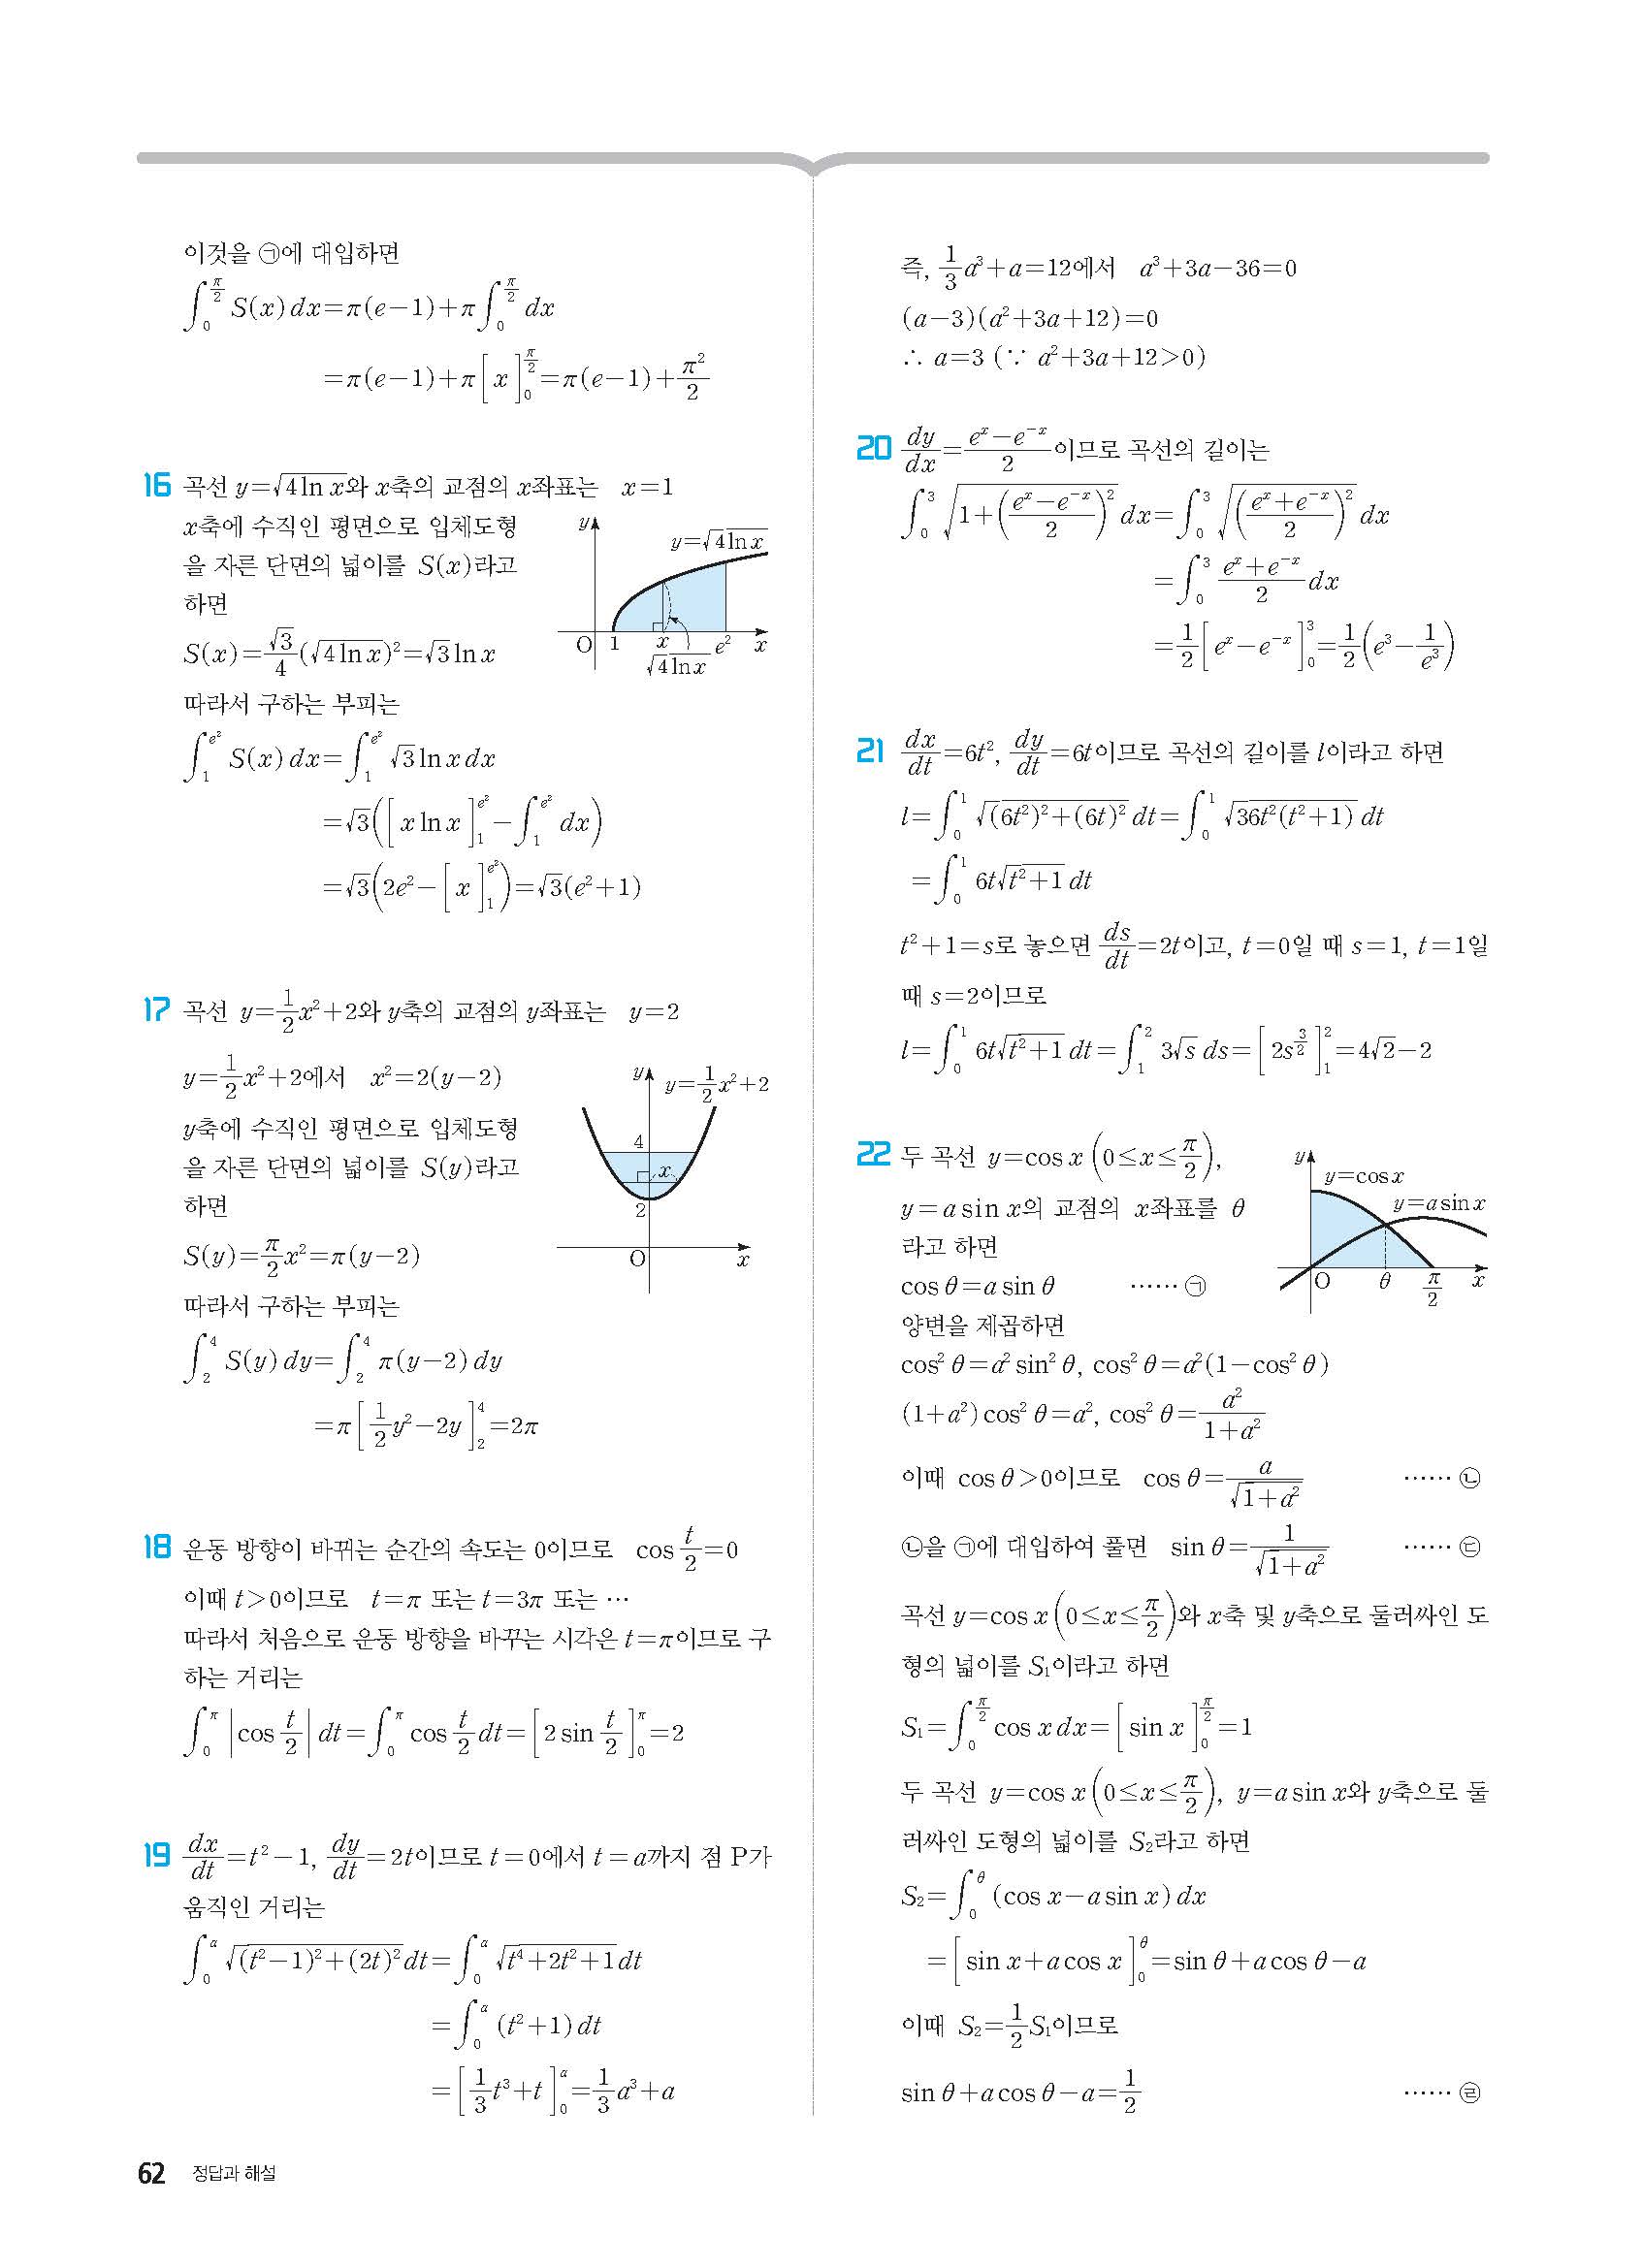 이것을 ㉠에 대입하면
∫₀^{π/2} S(x)dx=π(e−1)+π∫₀^{π/2} dx
=π(e−1)+π[x]₀^{π/2}=π(e−1)+π²/2
16 곡선 y=√(4 ln x)와 x축의 교점의 x좌표는 x=1
x축에 수직인 평면으로 입체도형
을 자른 단면의 넓이를 S(x)라고
하면
S(x)=√3/4(√(4 ln x))²=√3 ln x
y
y=√(4 ln x)
O 1 x e² x
√(4 ln x)
따라서 구하는 부피는
∫₁^{e²} S(x)dx=∫₁^{e²} √3 ln x dx
=√3([x ln x]₁^{e²}−∫₁^{e²} dx)
=√3(2e²−[x]₁^{e²})=√3(e²+1)
17 곡선 y=1/2x²+2와 y축의 교점의 y좌표는 y=2
y=1/2x²+2에서 x²=2(y−2)
y축에 수직인 평면으로 입체도형
을 자른 단면의 넓이를 S(y)라고
하면
S(y)=π/2x²=π(y−2)
y
y=1/2x²+2
4
x
2
O x
따라서 구하는 부피는
∫₂⁴ S(y)dy=∫₂⁴ π(y−2)dy
=π[1/2y²−2y]₂⁴=2π
18 운동 방향이 바뀌는 순간의 속도는 0이므로 cos t/2=0
이때 t>0이므로 t=π 또는 t=3π 또는 ⋯
따라서 처음으로 운동 방향을 바꾸는 시각은 t=π이므로 구
하는 거리는
∫₀^π |cos t/2|dt=∫₀^π cos t/2 dt=[2 sin t/2]₀^π=2
19 dx/dt=t²−1, dy/dt=2t이므로 t=0에서 t=a까지 점 P가
움직인 거리는
∫₀^a √((t²−1)²+(2t)²)dt=∫₀^a √(t⁴+2t²+1)dt
=∫₀^a (t²+1)dt
=[1/3t³+t]₀^a=1/3a³+a
즉, 1/3a³+a=12에서 a³+3a−36=0
(a−3)(a²+3a+12)=0
∴ a=3 (∵ a²+3a+12>0)
20 dy/dx=(eˣ−e⁻ˣ)/2이므로 곡선의 길이는
∫₀³ √(1+((eˣ−e⁻ˣ)/2)²)dx=∫₀³ √(((eˣ+e⁻ˣ)/2)²)dx
=∫₀³ (eˣ+e⁻ˣ)/2 dx
=1/2[eˣ−e⁻ˣ]₀³=1/2(e³−1/e³)
21 dx/dt=6t², dy/dt=6t이므로 곡선의 길이를 l이라고 하면
l=∫₀¹ √((6t²)²+(6t)²)dt=∫₀¹ √(36t²(t²+1))dt
=∫₀¹ 6t√(t²+1)dt
t²+1=s로 놓으면 ds/dt=2t이고, t=0일 때 s=1, t=1일
때 s=2이므로
l=∫₀¹ 6t√(t²+1)dt=∫₁² 3√s ds=[2s^{3/2}]₁²=4√2−2
22 두 곡선 y=cos x(0≤x≤π/2),
y=a sin x의 교점의 x좌표를 θ
라고 하면
cos θ=a sin θ ⋯⋯ ㉠
y
y=cos x
y=a sin x
O θ π/2 x
양변을 제곱하면
cos² θ=a² sin² θ, cos² θ=a²(1−cos² θ)
(1+a²)cos² θ=a², cos² θ=a²/(1+a²)
이때 cos θ>0이므로 cos θ=a/√(1+a²) ⋯⋯ ㉡
㉡을 ㉠에 대입하여 풀면 sin θ=1/√(1+a²) ⋯⋯ ㉢
곡선 y=cos x(0≤x≤π/2)와 x축 및 y축으로 둘러싸인 도
형의 넓이를 S₁이라고 하면
S₁=∫₀^{π/2} cos x dx=[sin x]₀^{π/2}=1
두 곡선 y=cos x(0≤x≤π/2), y=a sin x와 y축으로 둘
러싸인 도형의 넓이를 S₂라고 하면
S₂=∫₀^θ (cos x−a sin x)dx
=[sin x+a cos x]₀^θ=sin θ+a cos θ−a
이때 S₂=1/2S₁이므로
sin θ+a cos θ−a=1/2 ⋯⋯ ㉣
62 정답과 해설